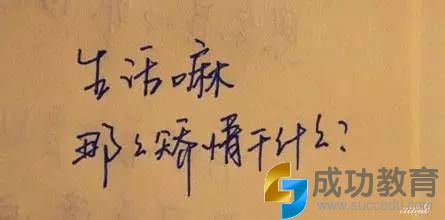 生活嘛
那么矫情干什么?
成功教育
www.succedu.com